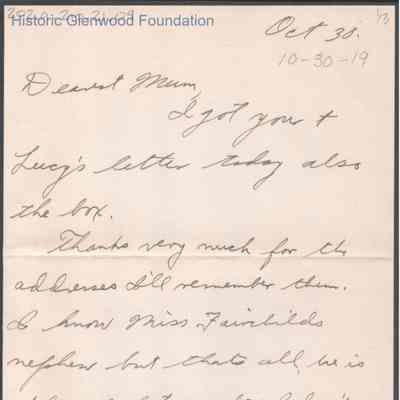 Historic Glenwood Foundation
1/3
Oct 30.
10-30-19
Dearest Mum,
I got your +
Lucy's letter today also
the box.
Thanks very much for the
addresses I'll remember them.
I know Miss Fairchilds
nephew but thats all, he is